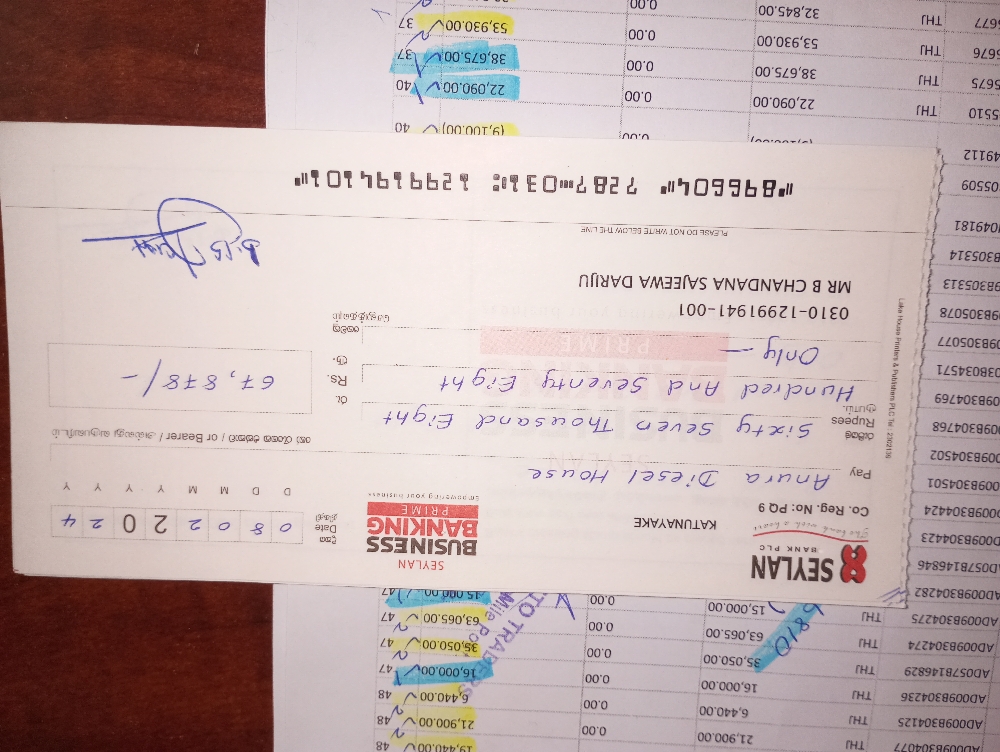 19,440.00 48
AD009B304077 THJ 21,900.00 0.00 21,900.00 48
AD009B304125 THJ 6,440.00 0.00 6,440.00 48
AD009B304236 THJ 16,000.00 0.00 16,000.00 47
AD057B146829 THJ 35,050.00 0.00 35,050.00 47
AD009B304274 THJ 63,065.00 0.00 63,065.00 47
AD009B304275 THJ 15,000.00 0.00 15,000.00 47
AD009B304282
D057B146846
D009B304423
009B304424
009B304501
009B304502
09B304768
09B304769
03B034571
09B305077
09B305078
9B305313
B305314
049181
05509
49112
SEYLAN
BANK PLC
The bank with a heart
Co. Reg. No: PQ 9
KATUNAYAKE
SEYLAN
BUSINESS
BANKING
PRIME
Empowering your business
දිනය
Date
திகதி
0 8 0 2 2 0 2 4
D D M M Y Y Y Y
Pay Anura Diesel House
or Bearer
රුපියල්
Rupees
ரூபாய்
Sixty Seven Thousand Eight
Hundred And Seventy Eight
Only
රු.
Rs.
ரூ.
67,878/-
0310-12991941-001
MR B CHANDANA SAJEEWA DARIJU
PLEASE DO NOT WRITE BELOW THE LINE
Lake House Printers & Publishers PLC
⑈896604⑈ 7287⑉031⑆ 1299194101⑈
(9,100.00) 40
5510 THJ 22,090.00 0.00 22,090.00 40
5675 THJ 38,675.00 0.00 38,675.00 37
5676 THJ 53,930.00 0.00 53,930.00 37
5677 THJ 32,845.00 0.00